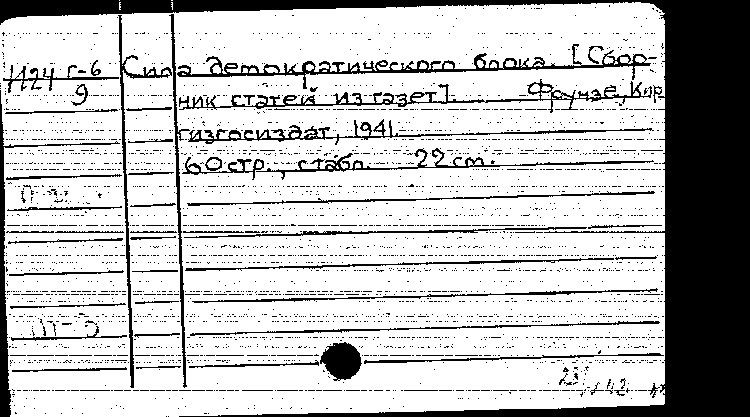 1124 г-6 Сила демократического блока. [Сбор-
9 ник статей из газет]. Фрунзе, Кир
гизгосиздат, 1941.
60 стр., с табл. 22 cm.